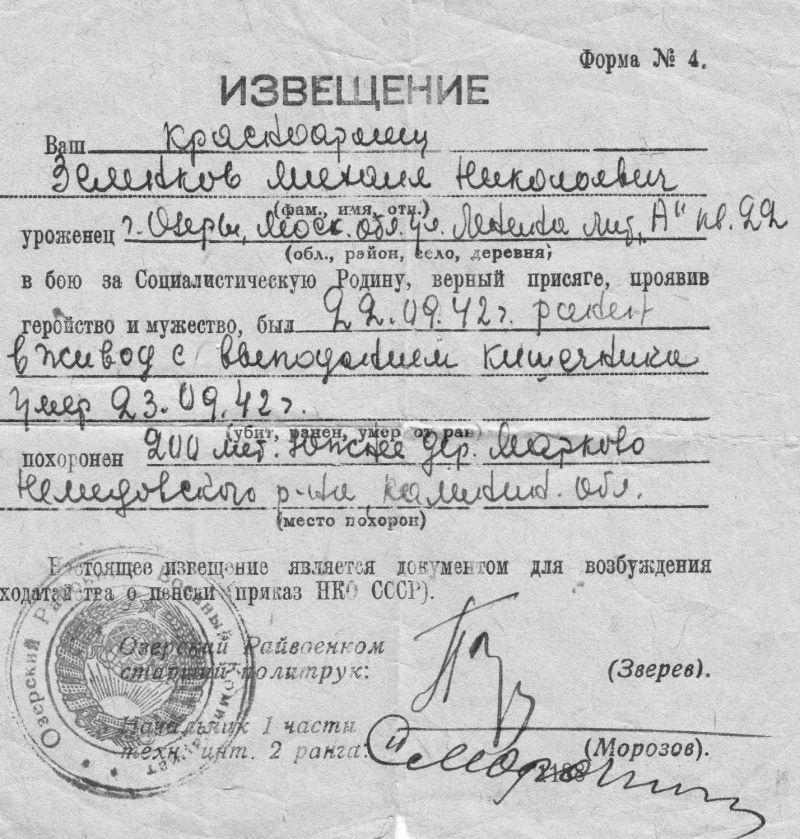 Форма № 4.
ИЗВЕЩЕНИЕ
Ваш красноармеец
Зеленков Михаил Николаевич
(фам., имя, отч.)
уроженец г. Озеры, Моск. обл. ул. Ленина лит. „А" кв. 22
(обл., район, село, деревня)
в бою за Социалистическую Родину, верный присяге, проявив
геройство и мужество, был 22.09.42 г. ранен
в живот с выпаданием кишечника
умер 23.09.42 г.
(убит, ранен, умер от ран)
похоронен 200 мет. Южнее дер. Марково
р-на, калинин. обл.
(место похорон)
Настоящее извещение является документом для возбуждения
ходатайства о пенсии (приказ НКО СССР).
Озерский Райвоенком
старший политрук:
(Зверев).
Начальник 1 части
техн. инт. 2 ранга:
(Морозов).
Озерский Районный Военный Комиссариат